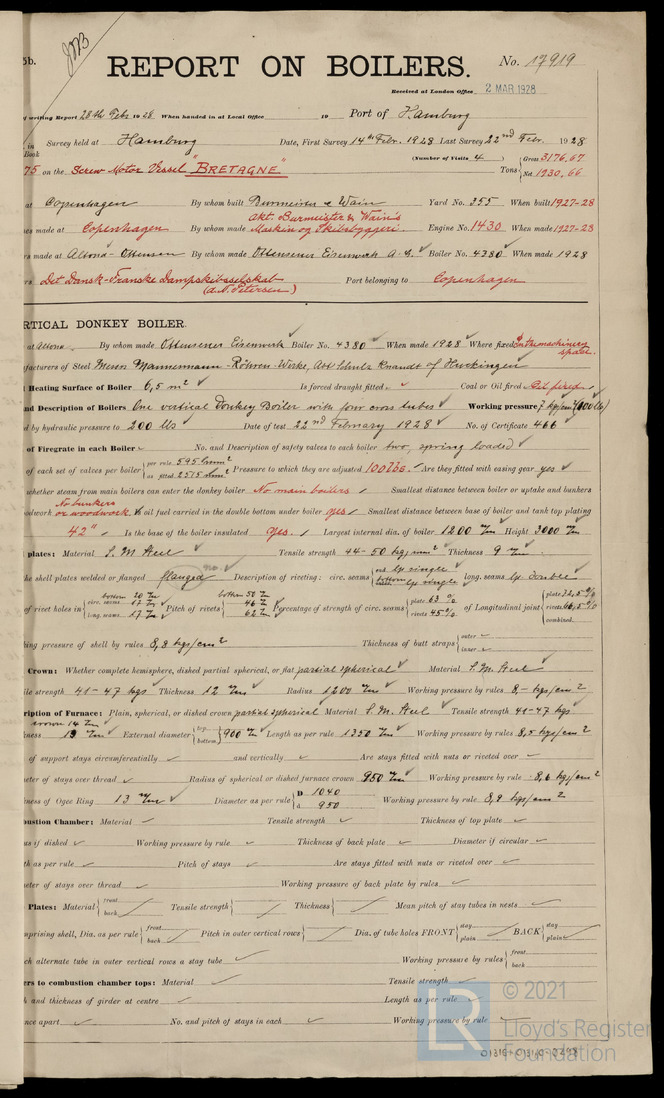 5b.
REPORT ON BOILERS.
No. 17919
Received at London Office 2 MAR 1928
writing Report 28th Feb. 1928 When handed in at Local Office 19 Port of Hamburg
Survey held at Hamburg Date, First Survey 14th Febr. 1928 Last Survey 22nd Febr. 1928
Book
(Number of Visits 4)
75 on the Screw Motor Vessel "BRETAGNE" Tons Gross 3176.67 Net 1930.66
at Copenhagen By whom built Burmeister & Wain Yard No. 355 When built 1927-28
es made at Copenhagen By whom made Akt. Burmeister & Wain's Maskin og Skibsbyggeri Engine No. 1430 When made 1927-28
rs made at Altona-Ottensen By whom made Ottensener Eisenwerk A.G. Boiler No. 4380 When made 1928
rs Det Dansk-Franske Dampskibsselskab (A.N. Petersen) Port belonging to Copenhagen
RTICAL DONKEY BOILER.
at Altona By whom made Ottensener Eisenwerk Boiler No. 4380 When made 1928 Where fixed In the machinery space.
facturers of Steel Messrs Mannesmann-Röhren-Werke, Abt Schulz Knaudt of Huckingen
Heating Surface of Boiler 6,5 m² Is forced draught fitted Coal or Oil fired Oil fired
nd Description of Boilers One vertical Donkey Boiler with four cross tubes Working pressure 7 kg/cm² (100 lb)
d by hydraulic pressure to 200 lbs Date of test 22nd February 1928 No. of Certificate 466
of Firegrate in each Boiler No. and Description of safety valves to each boiler two, spring loaded
of each set of valves per boiler per rule as fitted Pressure to which they are adjusted 100 lbs. Are they fitted with easing gear yes
whether steam from main boilers can enter the donkey boiler No main boilers Smallest distance between boiler or uptake and bunkers
odwork No bunkers or woodwork. Is oil fuel carried in the double bottom under boiler yes Smallest distance between base of boiler and tank top plating
42" Is the base of the boiler insulated yes. Largest internal dia. of boiler 1200 m/m Height 3000 m/m
plates: Material S.M. Steel Tensile strength 44-50 kg/mm² Thickness 9 m/m
he shell plates welded or flanged flanged no Description of riveting: circ. seams end lp single bottom lp single long. seams lp double
of rivet holes in circ. seams bottom 20 m/m 17 m/m long. seams 17 m/m Pitch of rivets bottom 50 m/m 46 m/m 62 m/m Percentage of strength of circ. seams plate 63 % rivets 45 % of Longitudinal joint plate 72,5 % rivets combined
king pressure of shell by rules 8,8 kgs/cm² Thickness of butt straps outer inner
Crown: Whether complete hemisphere, dished partial spherical, or flat partial spherical Material S.M. Steel
ile strength 41-47 kgs Thickness 12 m/m Radius 1200 m/m Working pressure by rules 8,- kgs/cm²
ription of Furnace: Plain, spherical, or dished crown partial spherical Material S.M. Steel Tensile strength 41-47 kgs
crown 14 m/m
ness 13 m/m External diameter top bottom 900 m/m Length as per rule 1350 m/m Working pressure by rules 8,5 kgs/cm²
of support stays circumferentially and vertically Are stays fitted with nuts or riveted over
eter of stays over thread Radius of spherical or dished furnace crown 950 m/m Working pressure by rule 8,6 kgs/cm²
ness of Ogee Ring 13 m/m Diameter as per rule D 1040 d 950 Working pressure by rule 8,9 kgs/cm²
bustion Chamber: Material Tensile strength Thickness of top plate
us if dished Working pressure by rule Thickness of back plate Diameter if circular
th as per rule Pitch of stays Are stays fitted with nuts or riveted over
eter of stays over thread Working pressure of back plate by rules
Plates: Material front back Tensile strength Thickness Mean pitch of stay tubes in nests
mprising shell, Dia. as per rule front back Pitch in outer vertical rows Dia. of tube holes FRONT stay plain BACK stay plain
ch alternate tube in outer vertical rows a stay tube Working pressure by rules front back
ers to combustion chamber tops: Material Tensile strength
h and thickness of girder at centre Length as per rule
nce apart No. and pitch of stays in each Working pressure by rule
LR
© 2021
Lloyd's Register
Foundation